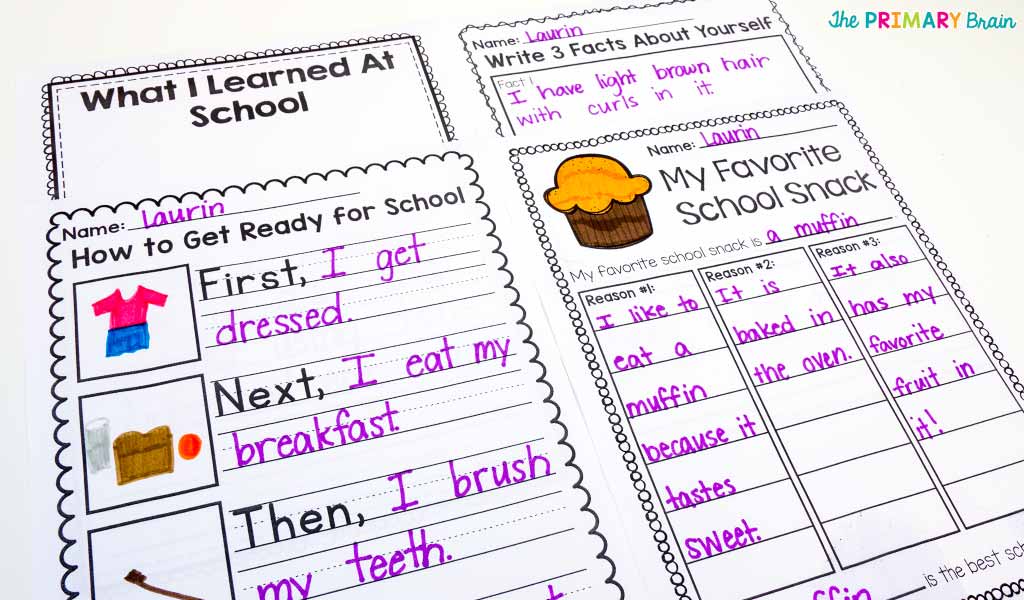 The PRIMARY Brain
What I Learned At
School
Name: Laurin
Write 3 Facts About Yourself
Fact 1
I have light brown hair
with curls in it.
Name: Laurin
How to Get Ready for School
First, I get
dressed.
Next, I eat my
breakfast.
Then, I brush
my teeth.
Name: Laurin
My Favorite
School Snack
My favorite school snack is a muffin.
Reason #1:
I like to
eat a
muffin
because it
tastes
sweet.
Reason #2:
It is
baked in
the oven.
Reason #3:
It also
has my
favorite
fruit in
it!
is the best